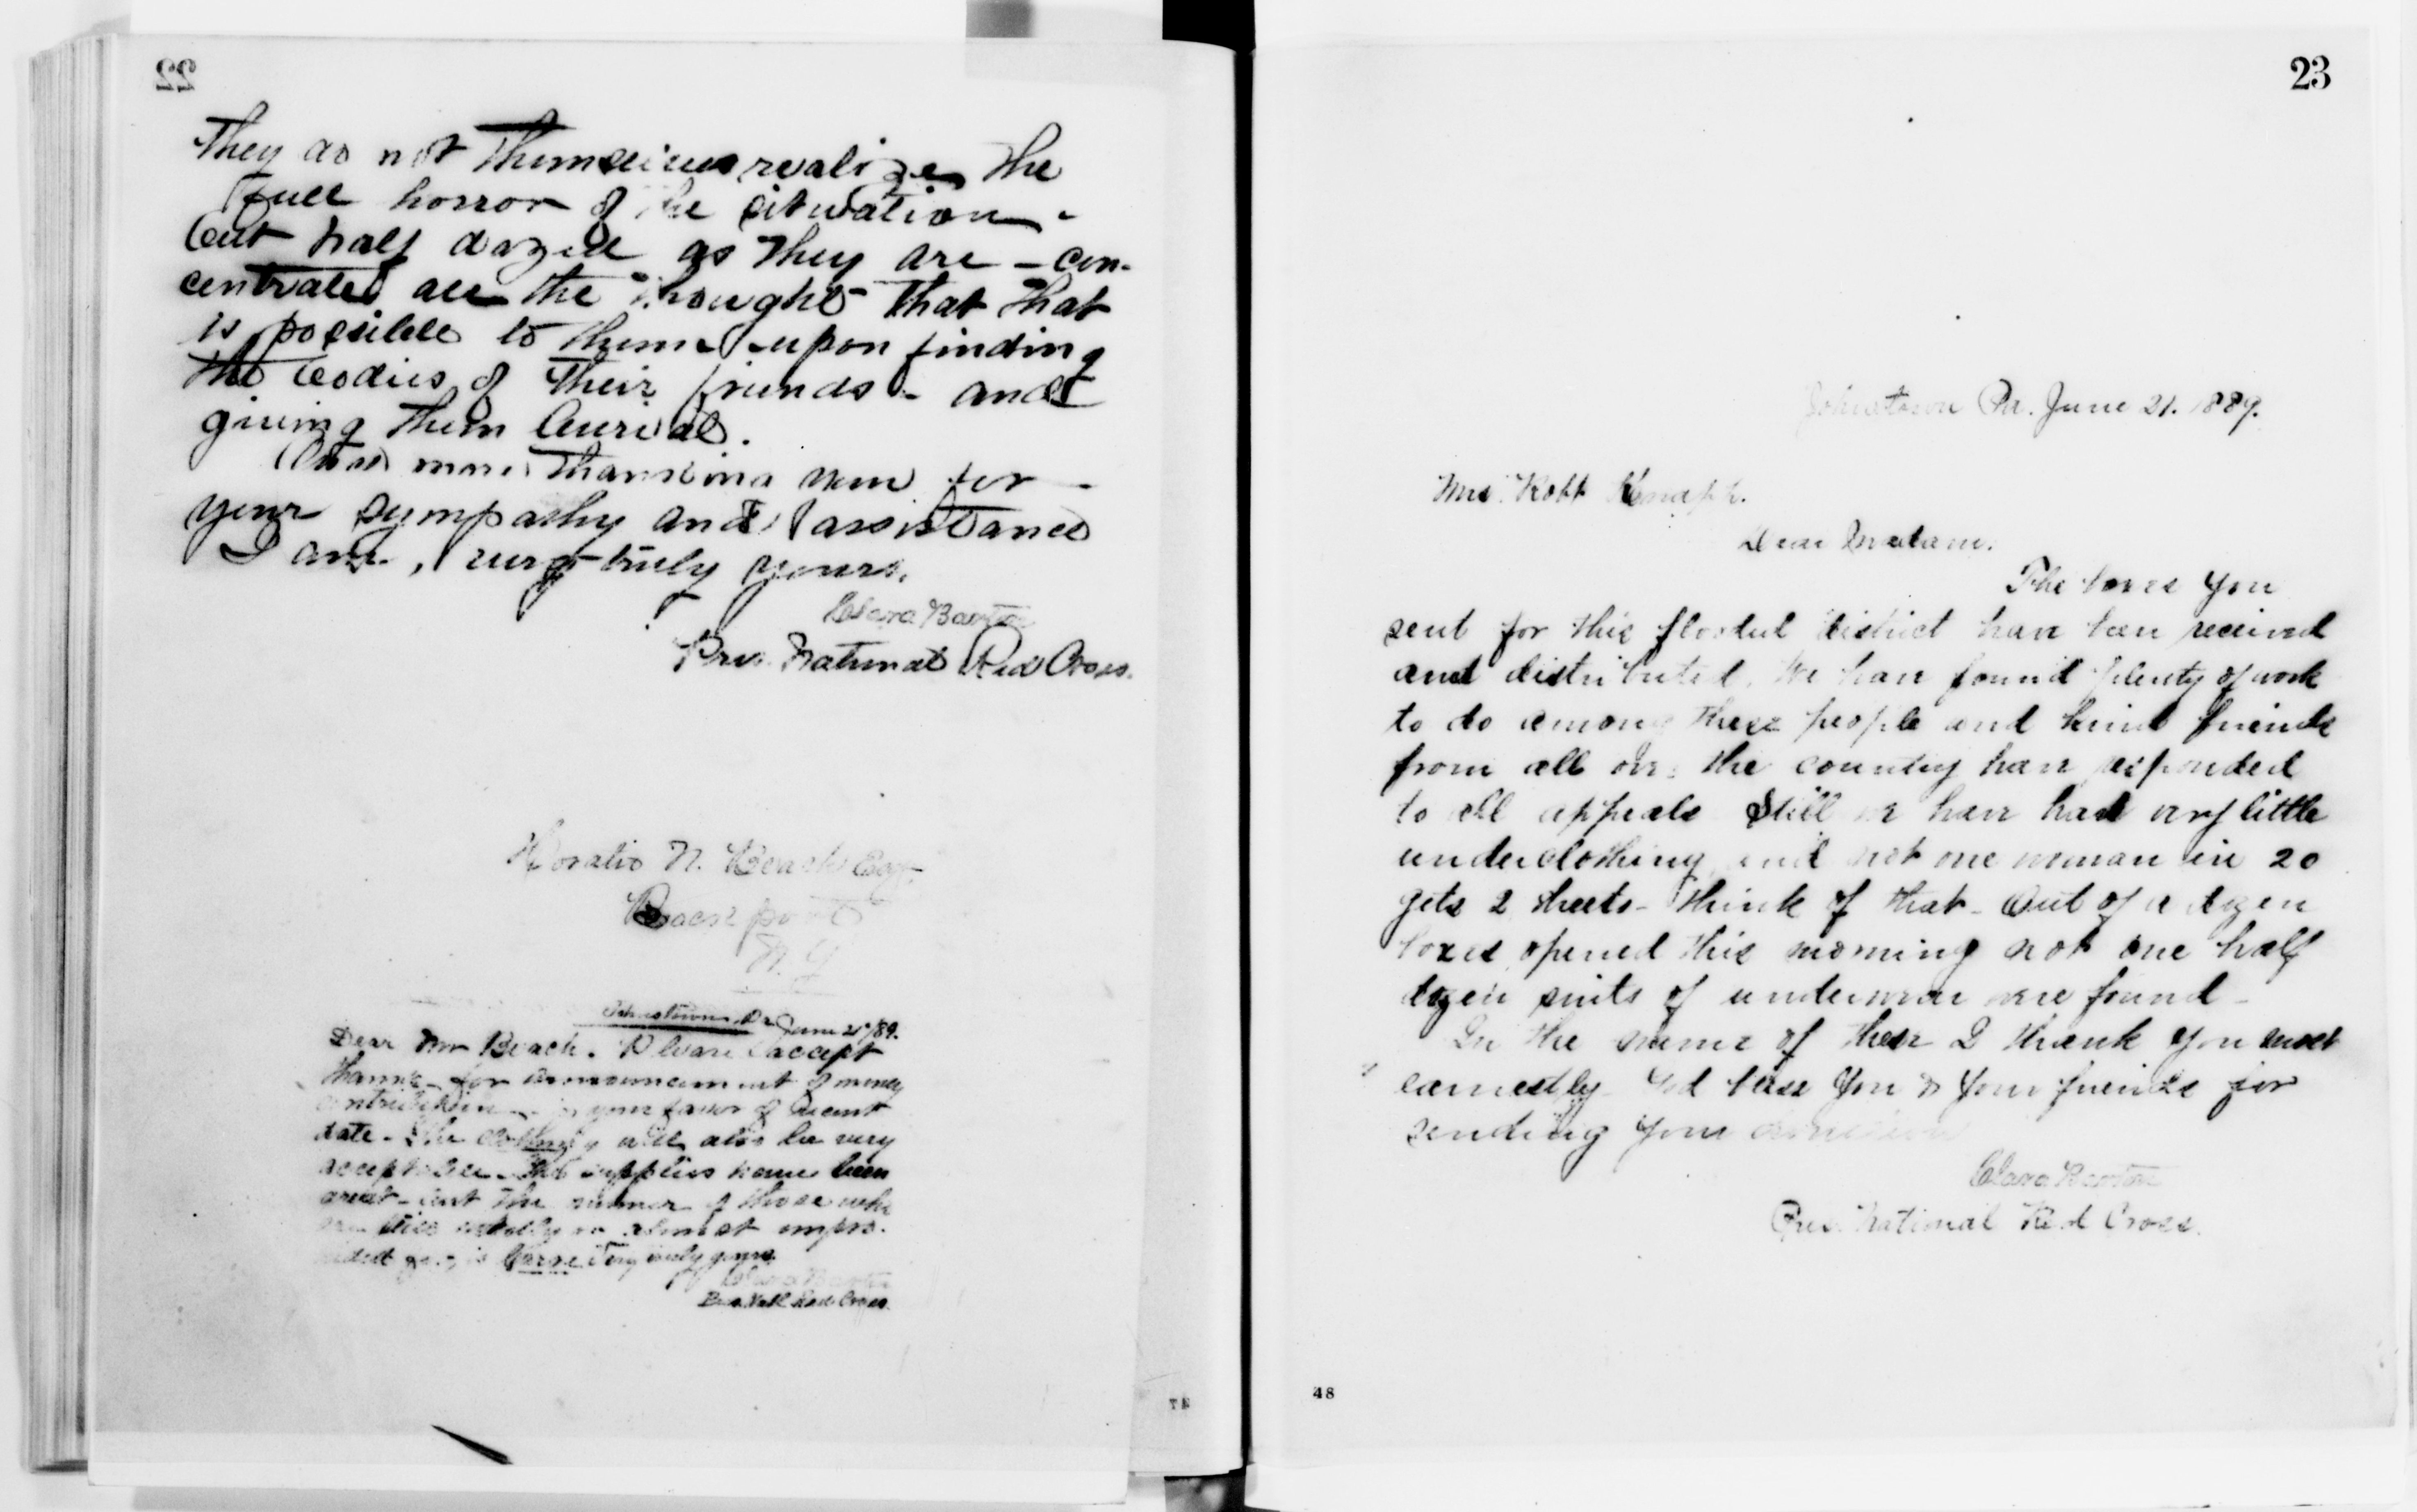 22
They do not themselves realize the
full horror of the situation -
but half dazed as they are - con-
centrated all the thought that that
is possible to them - upon finding
the bodies of their friends - and
giving them burial.
Once more thanking you for -
your sympathy and assistance
I am, very truly yours,
Clara Barton
Pres. National Red Cross.
Horatio N. Beach Esq.
Brockport
N.Y
Johnstown Pa June 21/89.
Dear Mr Beach. Please accept
thanks - for announcement of money
contribution - in your favor of recent
date - The clothing will also be very
acceptable - The supplies have been
great - but the number of those who
are still wholly or almost
is large Very truly yours
Clara Barton
Pres. Natl Red Cross.
23
Johnstown Pa. June 21. 1889.
Mrs. Robt Knapp.
Dear Madam.
The boxes you
sent for this flooded district have been received
and distributed. We have found plenty of work
to do among these people and kind friends
from all over the country have responded
to all appeals Still we have had very little
underclothing and not one woman in 20
gets 2 sheets - think of that - Out of a dozen
boxes opened this morning not one half
dozen suits of underwear were found -
In the name of these I thank you most
earnestly - God bless you & your friends for
sending your
Clara Barton
Pres. National Red Cross.
48